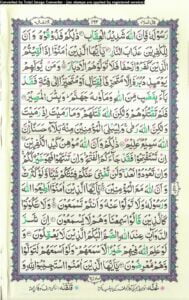 Converted by Total Image Converter - (no stamps are applied by registered version)
رَسُوْلَهٗ فَاِنَّ اللّٰهَ شَدِيْدُ الْعِقَابِ ذٰلِكُمْ فَذُوْقُوْهُ وَ اَنَّ
لِلْكٰفِرِيْنَ عَذَابَ النَّارِ يٰۤاَيُّهَا الَّذِيْنَ اٰمَنُوْۤا اِذَا لَقِيْتُمُ
الَّذِيْنَ كَفَرُوْا زَحْفًا فَلَا تُوَلُّوْهُمُ الْاَدْبَارَ وَ مَنْ يُّوَلِّهِمْ
يَوْمَىِٕذٍ دُبُرَهٗۤ اِلَّا مُتَحَرِّفًا لِّقِتَالٍ اَوْ مُتَحَيِّزًا اِلٰى فِئَةٍ فَقَدْ
بَآءَ بِغَضَبٍ مِّنَ اللّٰهِ وَ مَاْوٰىهُ جَهَنَّمُ وَ بِئْسَ الْمَصِيْرُ
فَلَمْ تَقْتُلُوْهُمْ وَ لٰكِنَّ اللّٰهَ قَتَلَهُمْ وَ مَا رَمَيْتَ اِذْ رَمَيْتَ
وَ لٰكِنَّ اللّٰهَ رَمٰى وَ لِيُبْلِيَ الْمُؤْمِنِيْنَ مِنْهُ بَلَآءً حَسَنًا اِنَّ
اللّٰهَ سَمِيْعٌ عَلِيْمٌ ذٰلِكُمْ وَ اَنَّ اللّٰهَ مُوْهِنُ كَيْدِ الْكٰفِرِيْنَ
اِنْ تَسْتَفْتِحُوْا فَقَدْ جَآءَكُمُ الْفَتْحُ وَ اِنْ تَنْتَهُوْا فَهُوَ
خَيْرٌ لَّكُمْ وَ اِنْ تَعُوْدُوْا نَعُدْ وَ لَنْ تُغْنِيَ عَنْكُمْ فِئَتُكُمْ
شَيْـًٔا وَّ لَوْ كَثُرَتْ وَ اَنَّ اللّٰهَ مَعَ الْمُؤْمِنِيْنَ يٰۤاَيُّهَا الَّذِيْنَ اٰمَنُوْۤا
اَطِيْعُوا اللّٰهَ وَ رَسُوْلَهٗ وَ لَا تَوَلَّوْا عَنْهُ وَ اَنْتُمْ تَسْمَعُوْنَ وَ لَا تَكُوْنُوْا
كَالَّذِيْنَ قَالُوْا سَمِعْنَا وَ هُمْ لَا يَسْمَعُوْنَ اِنَّ شَرَّ
الدَّوَآبِّ عِنْدَ اللّٰهِ الصُّمُّ الْبُكْمُ الَّذِيْنَ لَا يَعْقِلُوْنَ وَ لَوْ
عَلِمَ اللّٰهُ فِيْهِمْ خَيْرًا لَّاَسْمَعَهُمْ وَ لَوْ اَسْمَعَهُمْ لَتَوَلَّوْا
وَّ هُمْ مُّعْرِضُوْنَ يٰۤاَيُّهَا الَّذِيْنَ اٰمَنُوا اسْتَجِيْبُوْا لِلّٰهِ